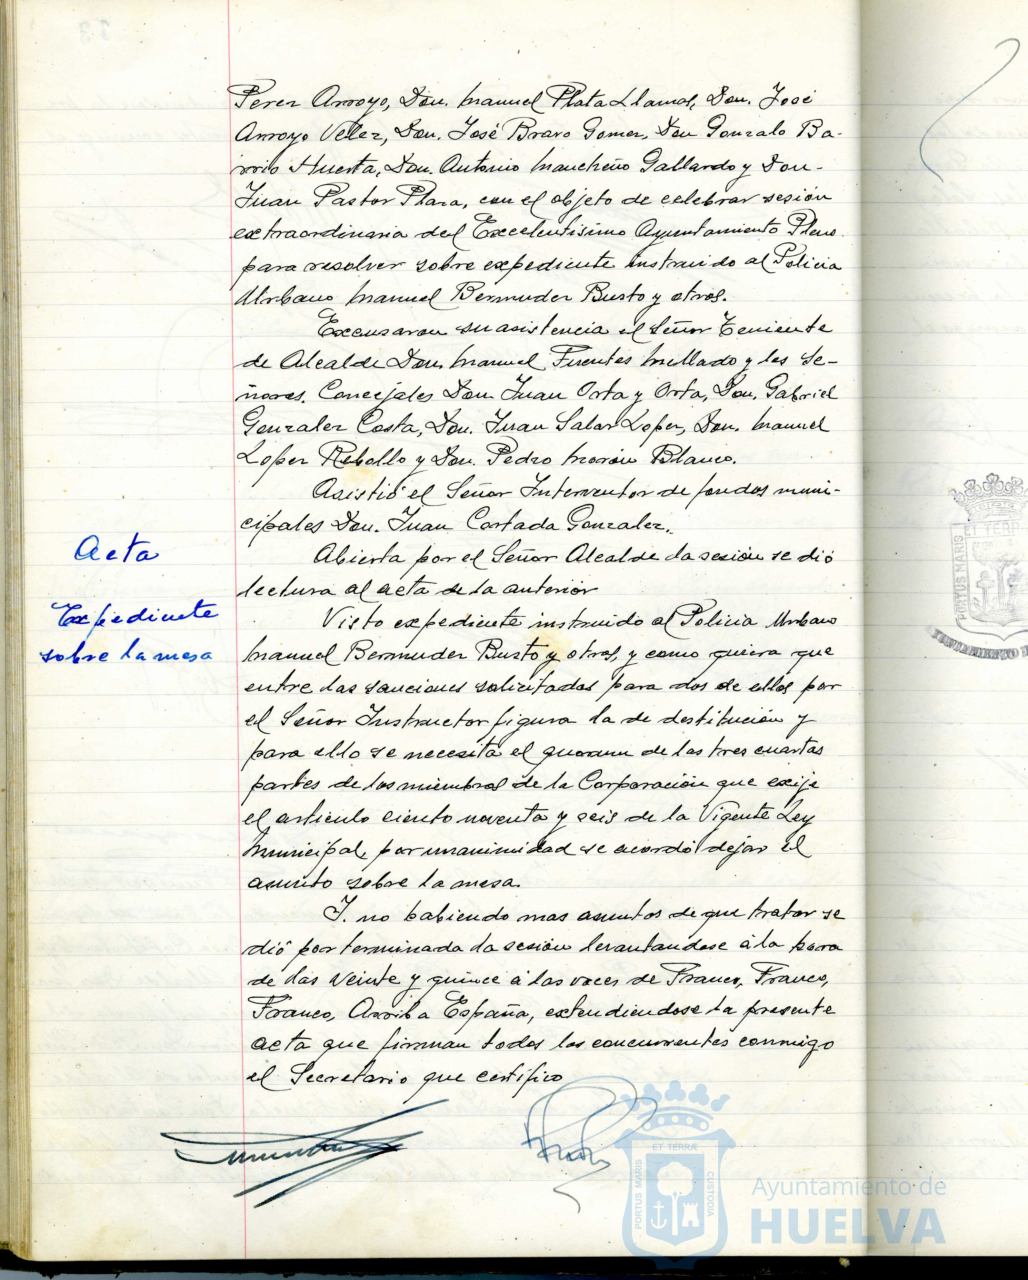 Perez Arroyo, Don. Manuel Plata Llamas, Don. José
Arroyo Vélez, Don. José Bravo Gomez, Don Gonzalo Ba-
rrio Huerta, Don. Antonio Mancheño Gallardo y Don-
Juan Pastor Plaza, con el objeto de celebrar sesión
extraordinaria del Excelentísimo Ayuntamiento Pleno
para resolver sobre expediente instruido al Policia
Urbano Manuel Bermudez Busto y otros.
Excusaron su asistencia el Señor Teniente
de Alcalde Don. Manuel Fuentes Mellado y los Se-
ñores. Concejales Don Juan Orta y Orta, Don. Gabriel
Gonzalez Costa, Don. Juan Salas Lopez, Don. Manuel
Lopez Rebollo y Don. Pedro Morón Blanco.
Asistió el Señor Interventor de fondos muni-
cipales Don. Juan Cortada Gonzalez.
Acta
Abierta por el Señor Alcalde la sesión se dió
lectura al acta de la anterior
Expediente
sobre la mesa
Visto expediente instruido al Policia Urbano
Manuel Bermudez Busto y otros, y como quiera que
entre las sanciones solicitadas para dos de ellos por
el Señor Instructor figura la de destitución y
para ello se necesita el quorum de las tres cuartas
partes de los miembros de la Corporación que exije
el articulo ciento noventa y seis de la Vigente Ley
Municipal, por unanimidad se acordó dejar el
asunto sobre la mesa.
Y. no habiendo mas asuntos de que tratar se
dió por terminada la sesión levantandose á la hora
de las veinte y quince á las voces de Franco, Franco,
Franco, Arriba España, extendiendose la presente
acta que firman todos los concurrentes conmigo
el Secretario que certifico
PORTUS MARIS
ET TERRÆ
CUSTODIA
Ayuntamiento de
HUELVA
PORTUS MARIS
ET TERR